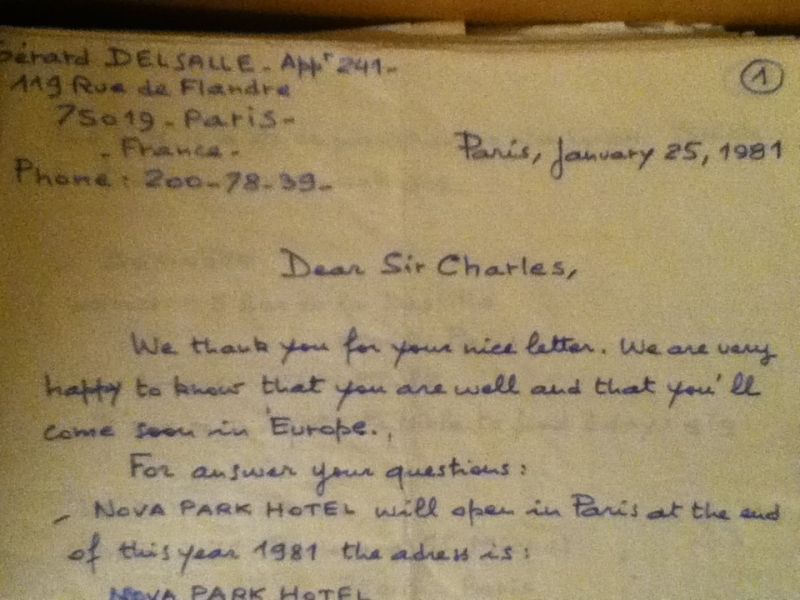 Gérard DELSALLE - Appt 241 -
1
119 Rue de Flandre
75019 - Paris -
- France -
Paris, January 25, 1981
Phone : 200-78-39-
Dear Sir Charles,
We thank you for your nice letter. We are very
happy to know that you are well and that you'll
come soon in Europe.
For answer your questions :
- NOVA PARK HOTEL will open in Paris at the end
of this year 1981 the adress is :
NOVA PARK HOTEL